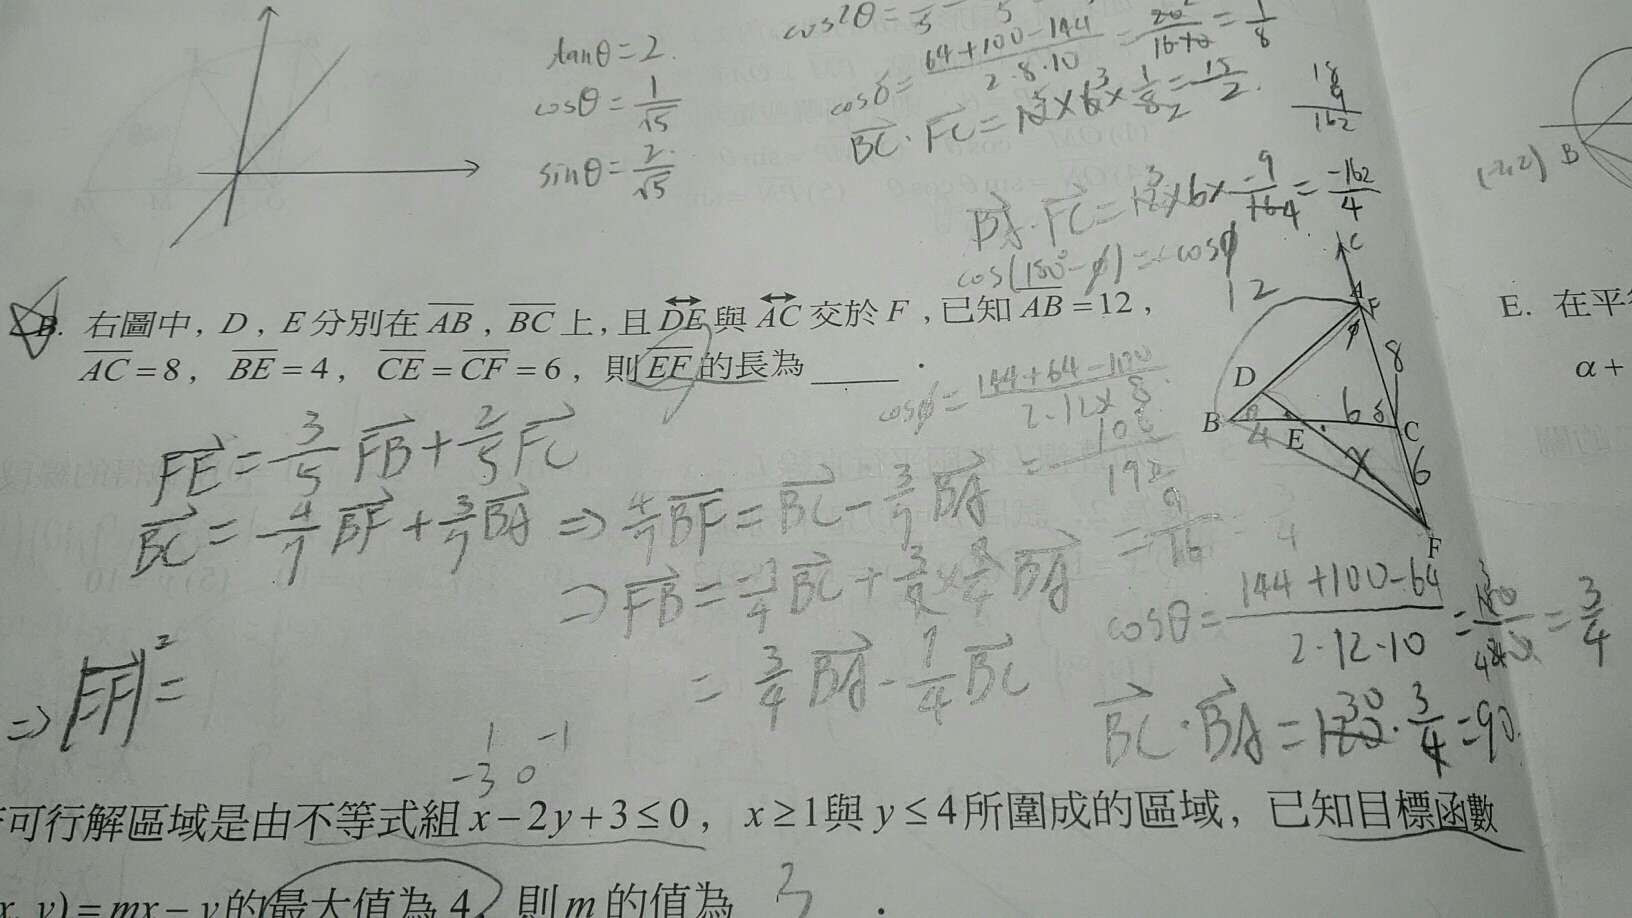 tanθ = 2.
cosθ = 1/√5
sinθ = 2/√5
cos²θ =
cosδ = (64+100-144)/(2·8·10) = = 1/8
BC · FC = = 15/2.
18
9
162
BA · FC = = -162/4
cos(180°-φ) = -cosφ
12
B. 右圖中, D, E 分別在 AB, BC 上, 且 DE 與 AC 交於 F, 已知 AB = 12,
AC = 8, BE = 4, CE = CF = 6, 則 EF 的長為 ____.
cosφ = (144+64-100)/(2·12×8)
= 108/192
= 9/16
A
F
φ
8
D
B
4
E
6
δ
C
x
6
F
FE = 3/5 FB + 2/5 FC
BC = 4/7 BF + 3/7 BA ⇒ 4/7 BF = BC - 3/7 BA
⇒ FB = -7/4 BC + BA
= 3/4 BA - 7/4 BC
⇒ |EF|² =
cosθ = (144+100-64)/(2·12·10) = = 3/4
BC · BA = · 3/4 = 90.
1 -1
-3 0
可行解區域是由不等式組 x - 2y + 3 ≤ 0, x ≥ 1 與 y ≤ 4 所圍成的區域, 已知目標函數
x, y) = mx - y 的最大值為 4, 則 m 的值為 3.
(-2,2)
B
E. 在平
α +